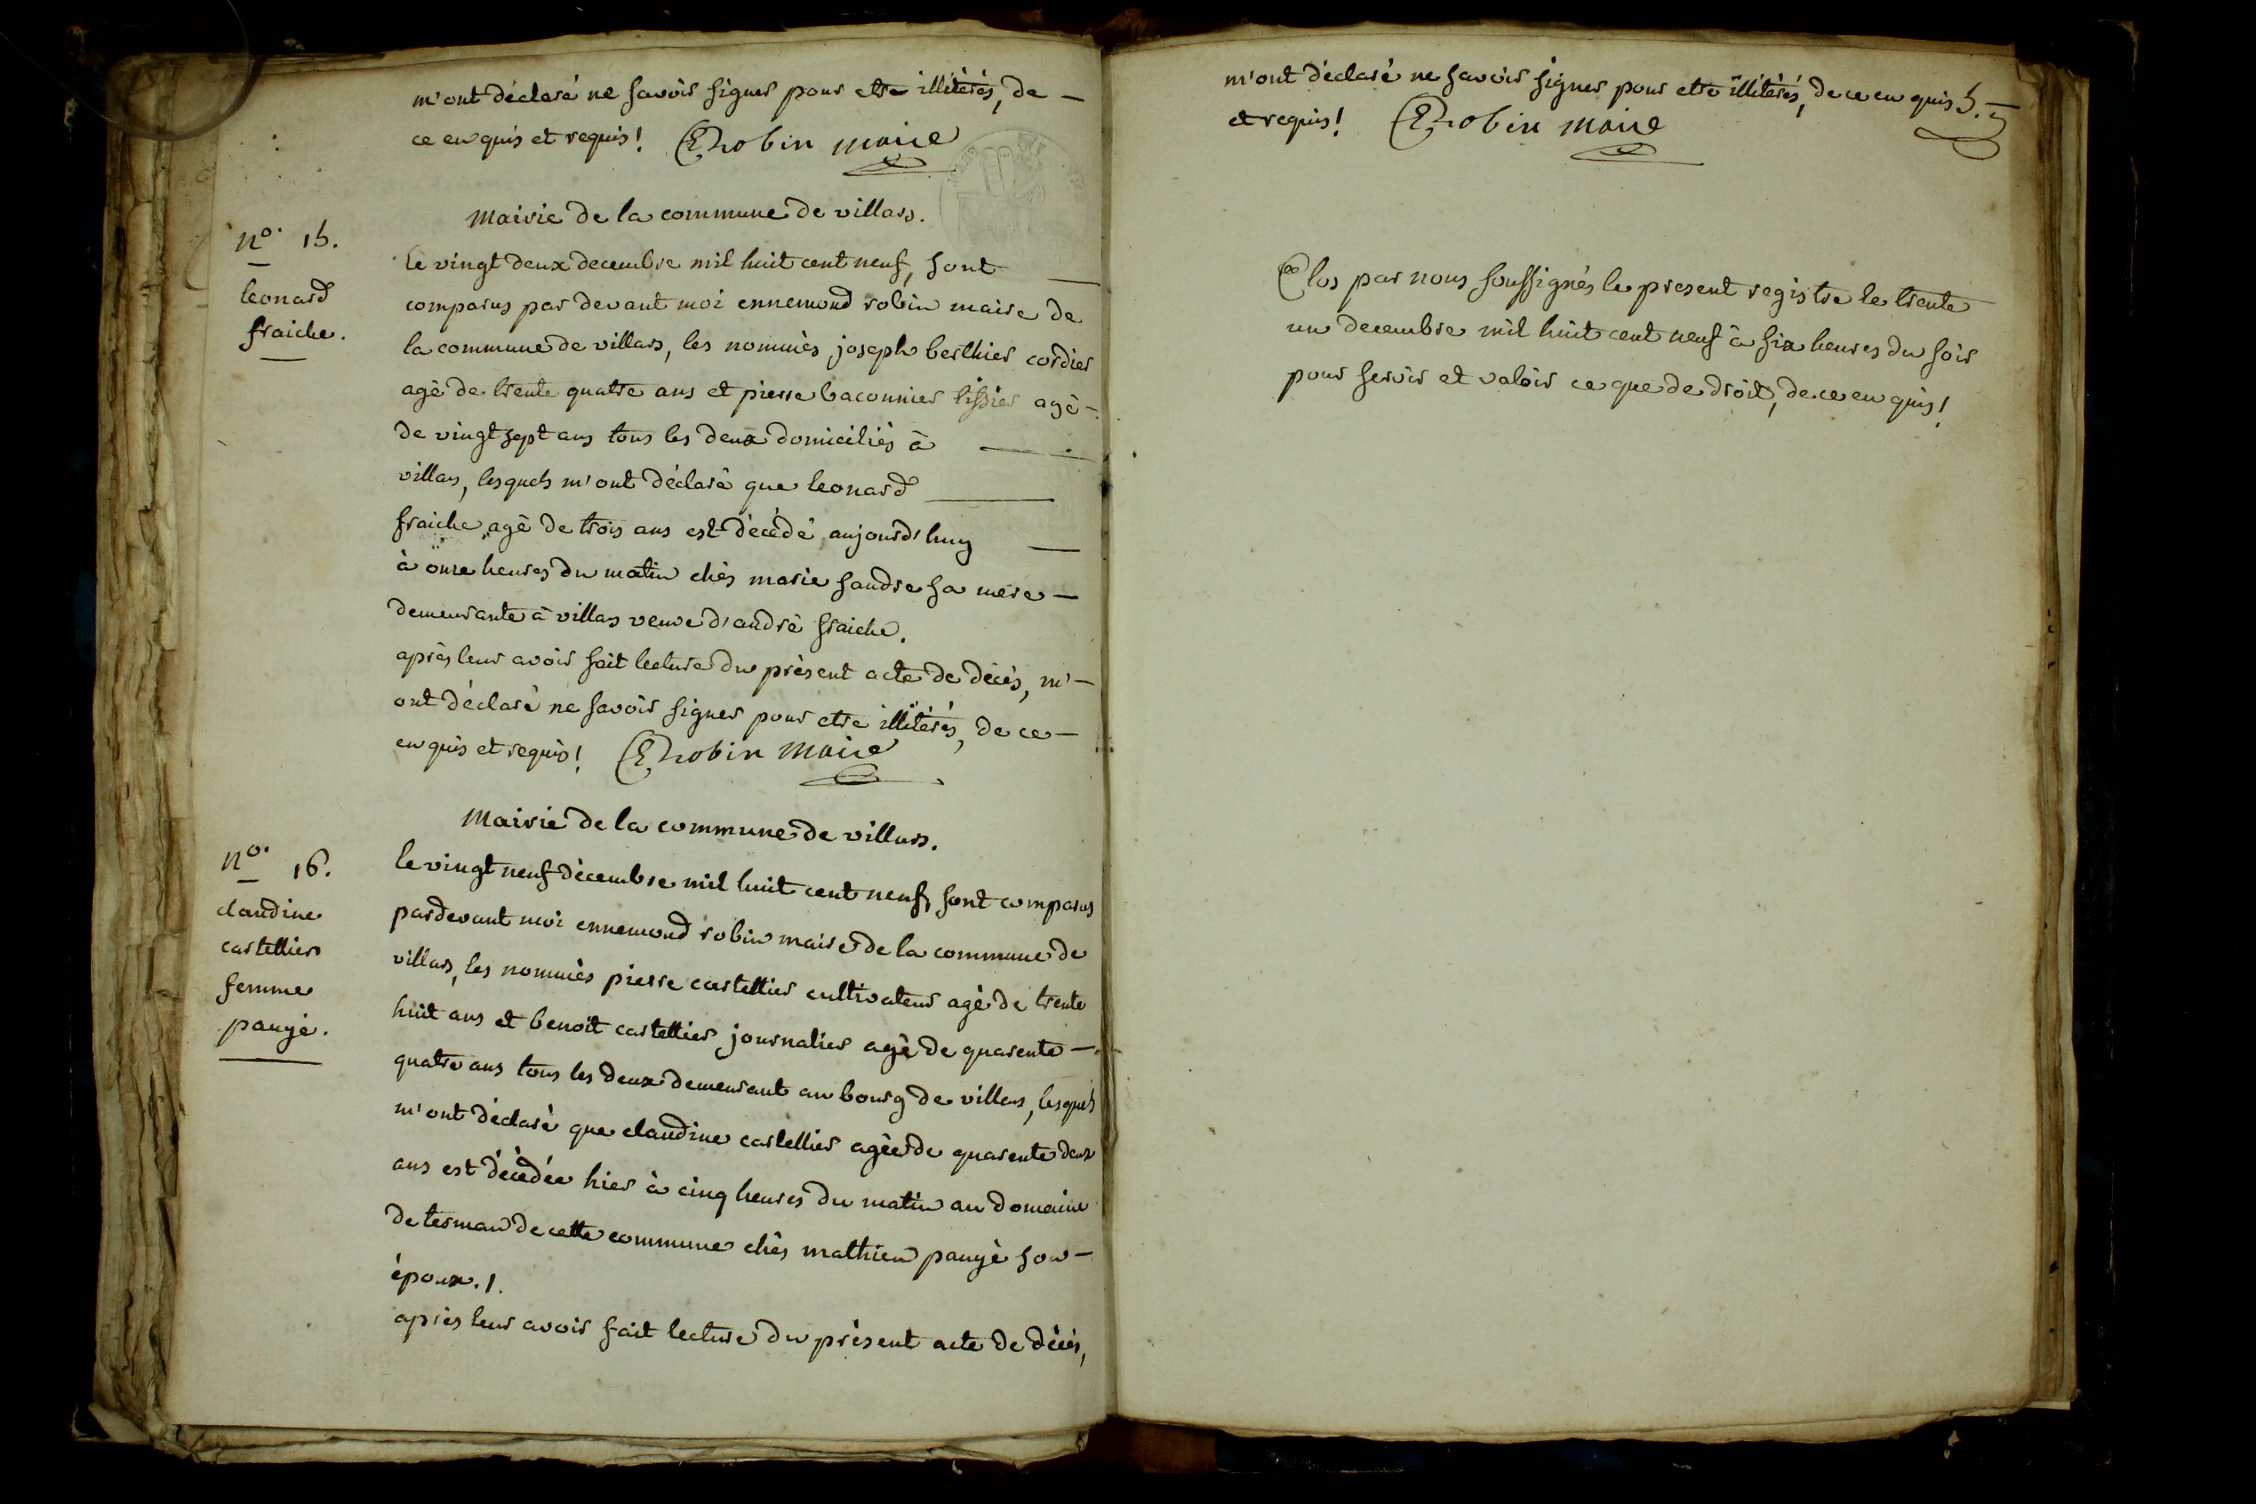 m'ont déclaré ne savoir signer pour etre illitérés, de —
ce enquis et requis! E Robin maire
Mairie de la commune de villars.
n°. 15.
leonard
fraiche.
le vingt deux decembre mil huit cent neuf, sont —
comparus par devant moi ennemond robin maire de
la commune de villars, les nommés joseph berthier cordier
agé de trente quatre ans et pierre baconnier tissier agé —
de vingt sept ans tous les deux domiciliés à —
villars, lesquels m'ont déclaré que leonard —
fraiche agé de trois ans est décédé aujourd'huy —
à onze heures du matin chès marie sandre sa mère —
demeurante à villars veuve d'andré fraiche.
après leur avoir fait lecture du présent acte de décès, m'—
ont déclaré ne savoir signer pour etre illitérés, de ce —
enquis et requis! E Robin Maire
Mairie de la commune de villars.
n°. 16.
claudine
castellier
femme
paugé.
le vingt neuf décembre mil huit cent neuf, sont comparus
pardevant moi ennemond robin maire de la commune de
villars, les nommés pierre castellier cultivateur agé de trente
huit ans et benoit castellier journalier agé de quarente —
quatre ans tous les deux demeurant au bourg de villars, lesquels
m'ont déclaré que claudine castellier agée de quarente deux
ans est décédée hier à cinq heures du matin au domaine
de tesman de cette commune chès mathieu paugé son —
époux. /.
après leur avoir fait lecture du présent acte de décès,
m'ont déclaré ne savoir signer pour etre illitérés, de ce enquis
et requis! E Robin maire
Clos par nous soussignés le present registre le trente
un decembre mil huit cent neuf à six heures du soir
pour servir et valoir ce que de droit, de ce enquis!